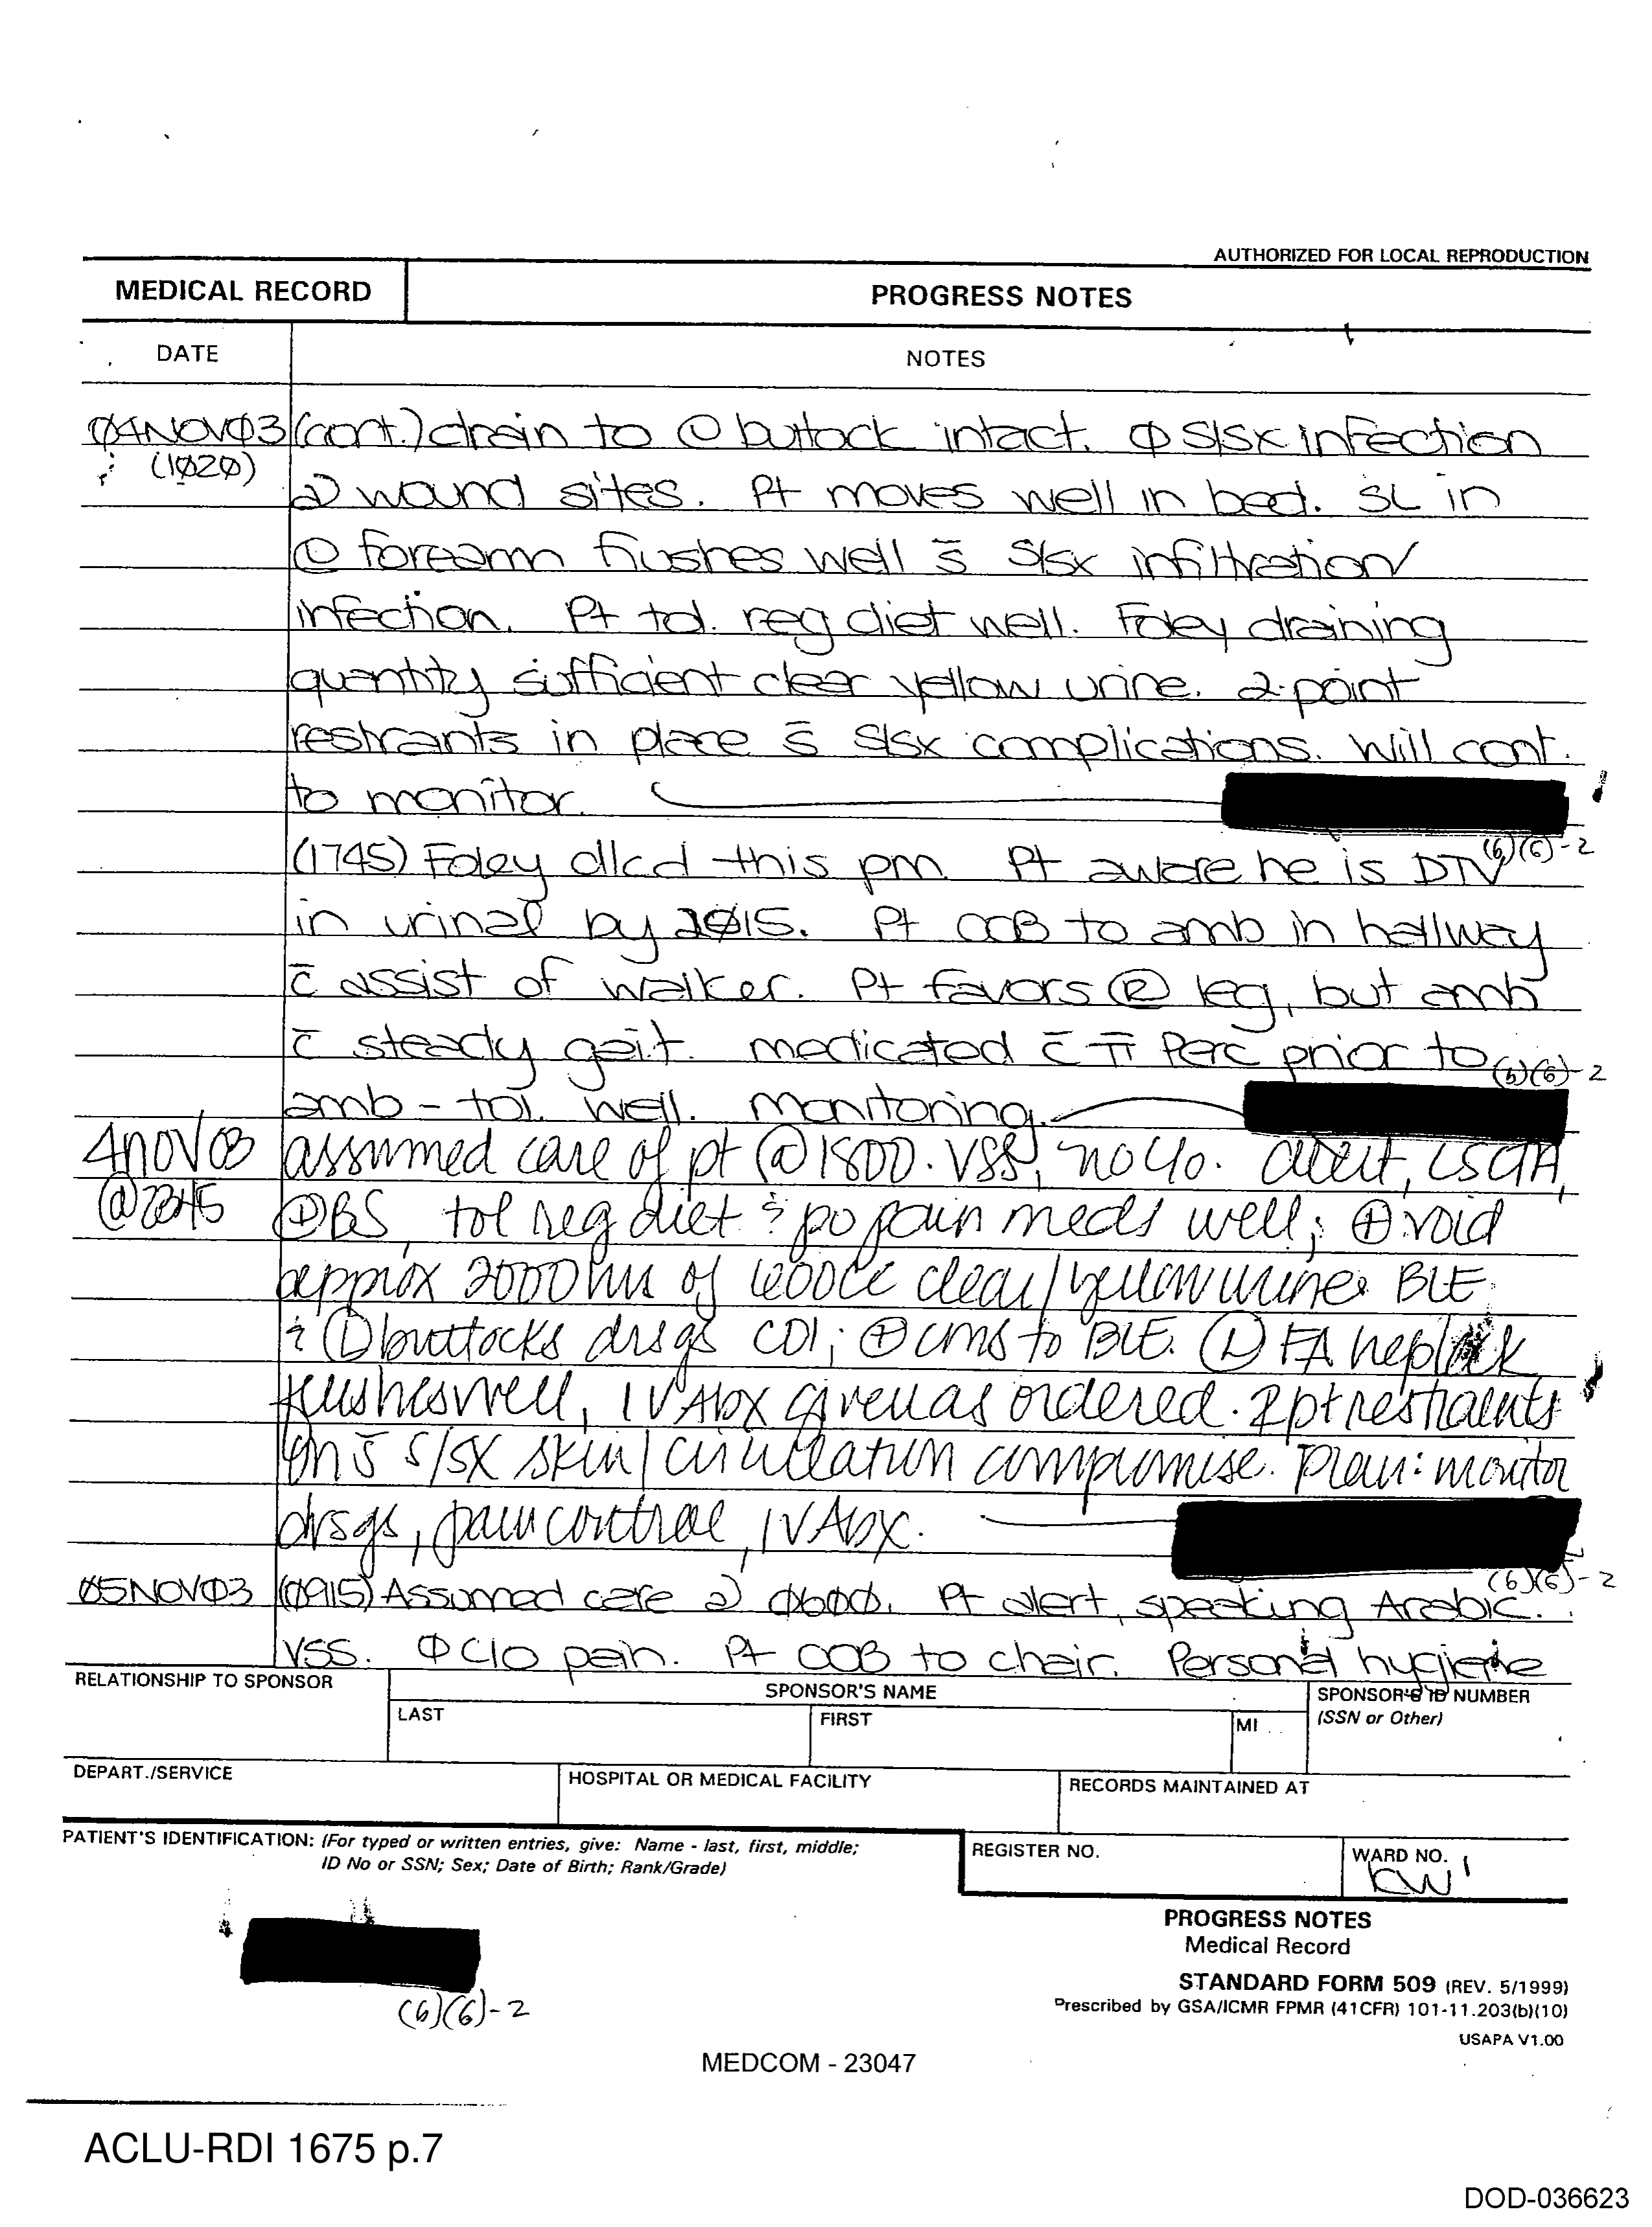 AUTHORIZED FOR LOCAL REPRODUCTION
MEDICAL RECORD
PROGRESS NOTES
DATE
NOTES
Ø4NOVØ3 (cont.) drain to Ⓛ buttock intact. Φ S/SX infection
(1Ø2Ø)
@ wound sites. Pt moves well in bed. SL in
Ⓛ forearm flushes well s̄ S/Sx infiltration/
infection. Pt tol. reg diet well. Foley draining
quantity sufficient clear yellow urine. 2-point
restraints in place s̄ S/Sx complications. Will cont.
to monitor.
(6)(6)-2
(1745) Foley d/cd this pm. Pt aware he is DTV
in urinal by 2Ø15. Pt OOB to amb in hallway
c̄ assist of walker. Pt favors Ⓡ leg, but amb
c̄ steady gait. medicated c̄ ii Perc prior to
(6)(6)-2
amb - tol. well. Monitoring.
4 NOV 03 assumed care of pt @ 1800. VSS, no c/o. alert, LSCTA,
@ 2345
⊕BS, tol reg diet & po pain meds well; ⊕ void
approx 2000 hrs of 600cc clear/yellow urine. BLE
& Ⓛ buttocks drsgs CDI; ⊕ cms to BLE. Ⓛ FA heplock
flushes well, IV Abx given as ordered. 2 pt restraints
on s̄ s/sx skin/circulation compromise. Plan: monitor
drsgs, pain control, IV Abx.
(6)(6)-2
Ø5NOVØ3 (0915) Assumed care @ Ø6ØØ. Pt alert, speaking Arabic.
VSS. Φ C/O pain. Pt OOB to chair. Personal hygiene
RELATIONSHIP TO SPONSOR
SPONSOR'S NAME
SPONSOR'S ID NUMBER
(SSN or Other)
LAST
FIRST
MI
DEPART./SERVICE
HOSPITAL OR MEDICAL FACILITY
RECORDS MAINTAINED AT
PATIENT'S IDENTIFICATION: (For typed or written entries, give: Name - last, first, middle;
ID No or SSN; Sex; Date of Birth; Rank/Grade)
REGISTER NO.
WARD NO.
ICW1
(6)(6)-2
PROGRESS NOTES
Medical Record
STANDARD FORM 509 (REV. 5/1999)
Prescribed by GSA/ICMR FPMR (41CFR) 101-11.203(b)(10)
USAPA V1.00
MEDCOM - 23047
ACLU-RDI 1675 p.7
DOD-036623